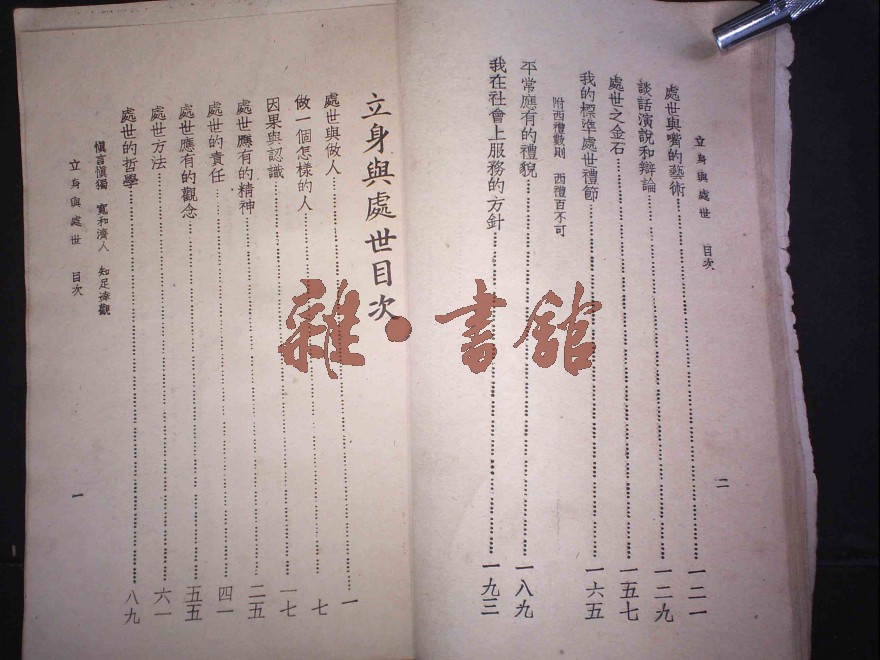 立身與處世目次
處世與做人……一
做一個怎樣的人……七
因果與認識……一七
處世應有的精神……二五
處世的責任……四一
處世應有的觀念……五五
處世方法……六一
處世的哲學……八九
愼言愼獨　寬和濟人　知足達觀
立身與處世　目次　一
立身與處世　目次　二
處世與嘴的藝術……一二一
談話演說和辯論……一二九
處世之金石……一五七
我的標準處世禮節……一六五
附西禮數則　西禮百不可
平常應有的禮貌……一八九
我在社會上服務的方針……一九三
雜·書館